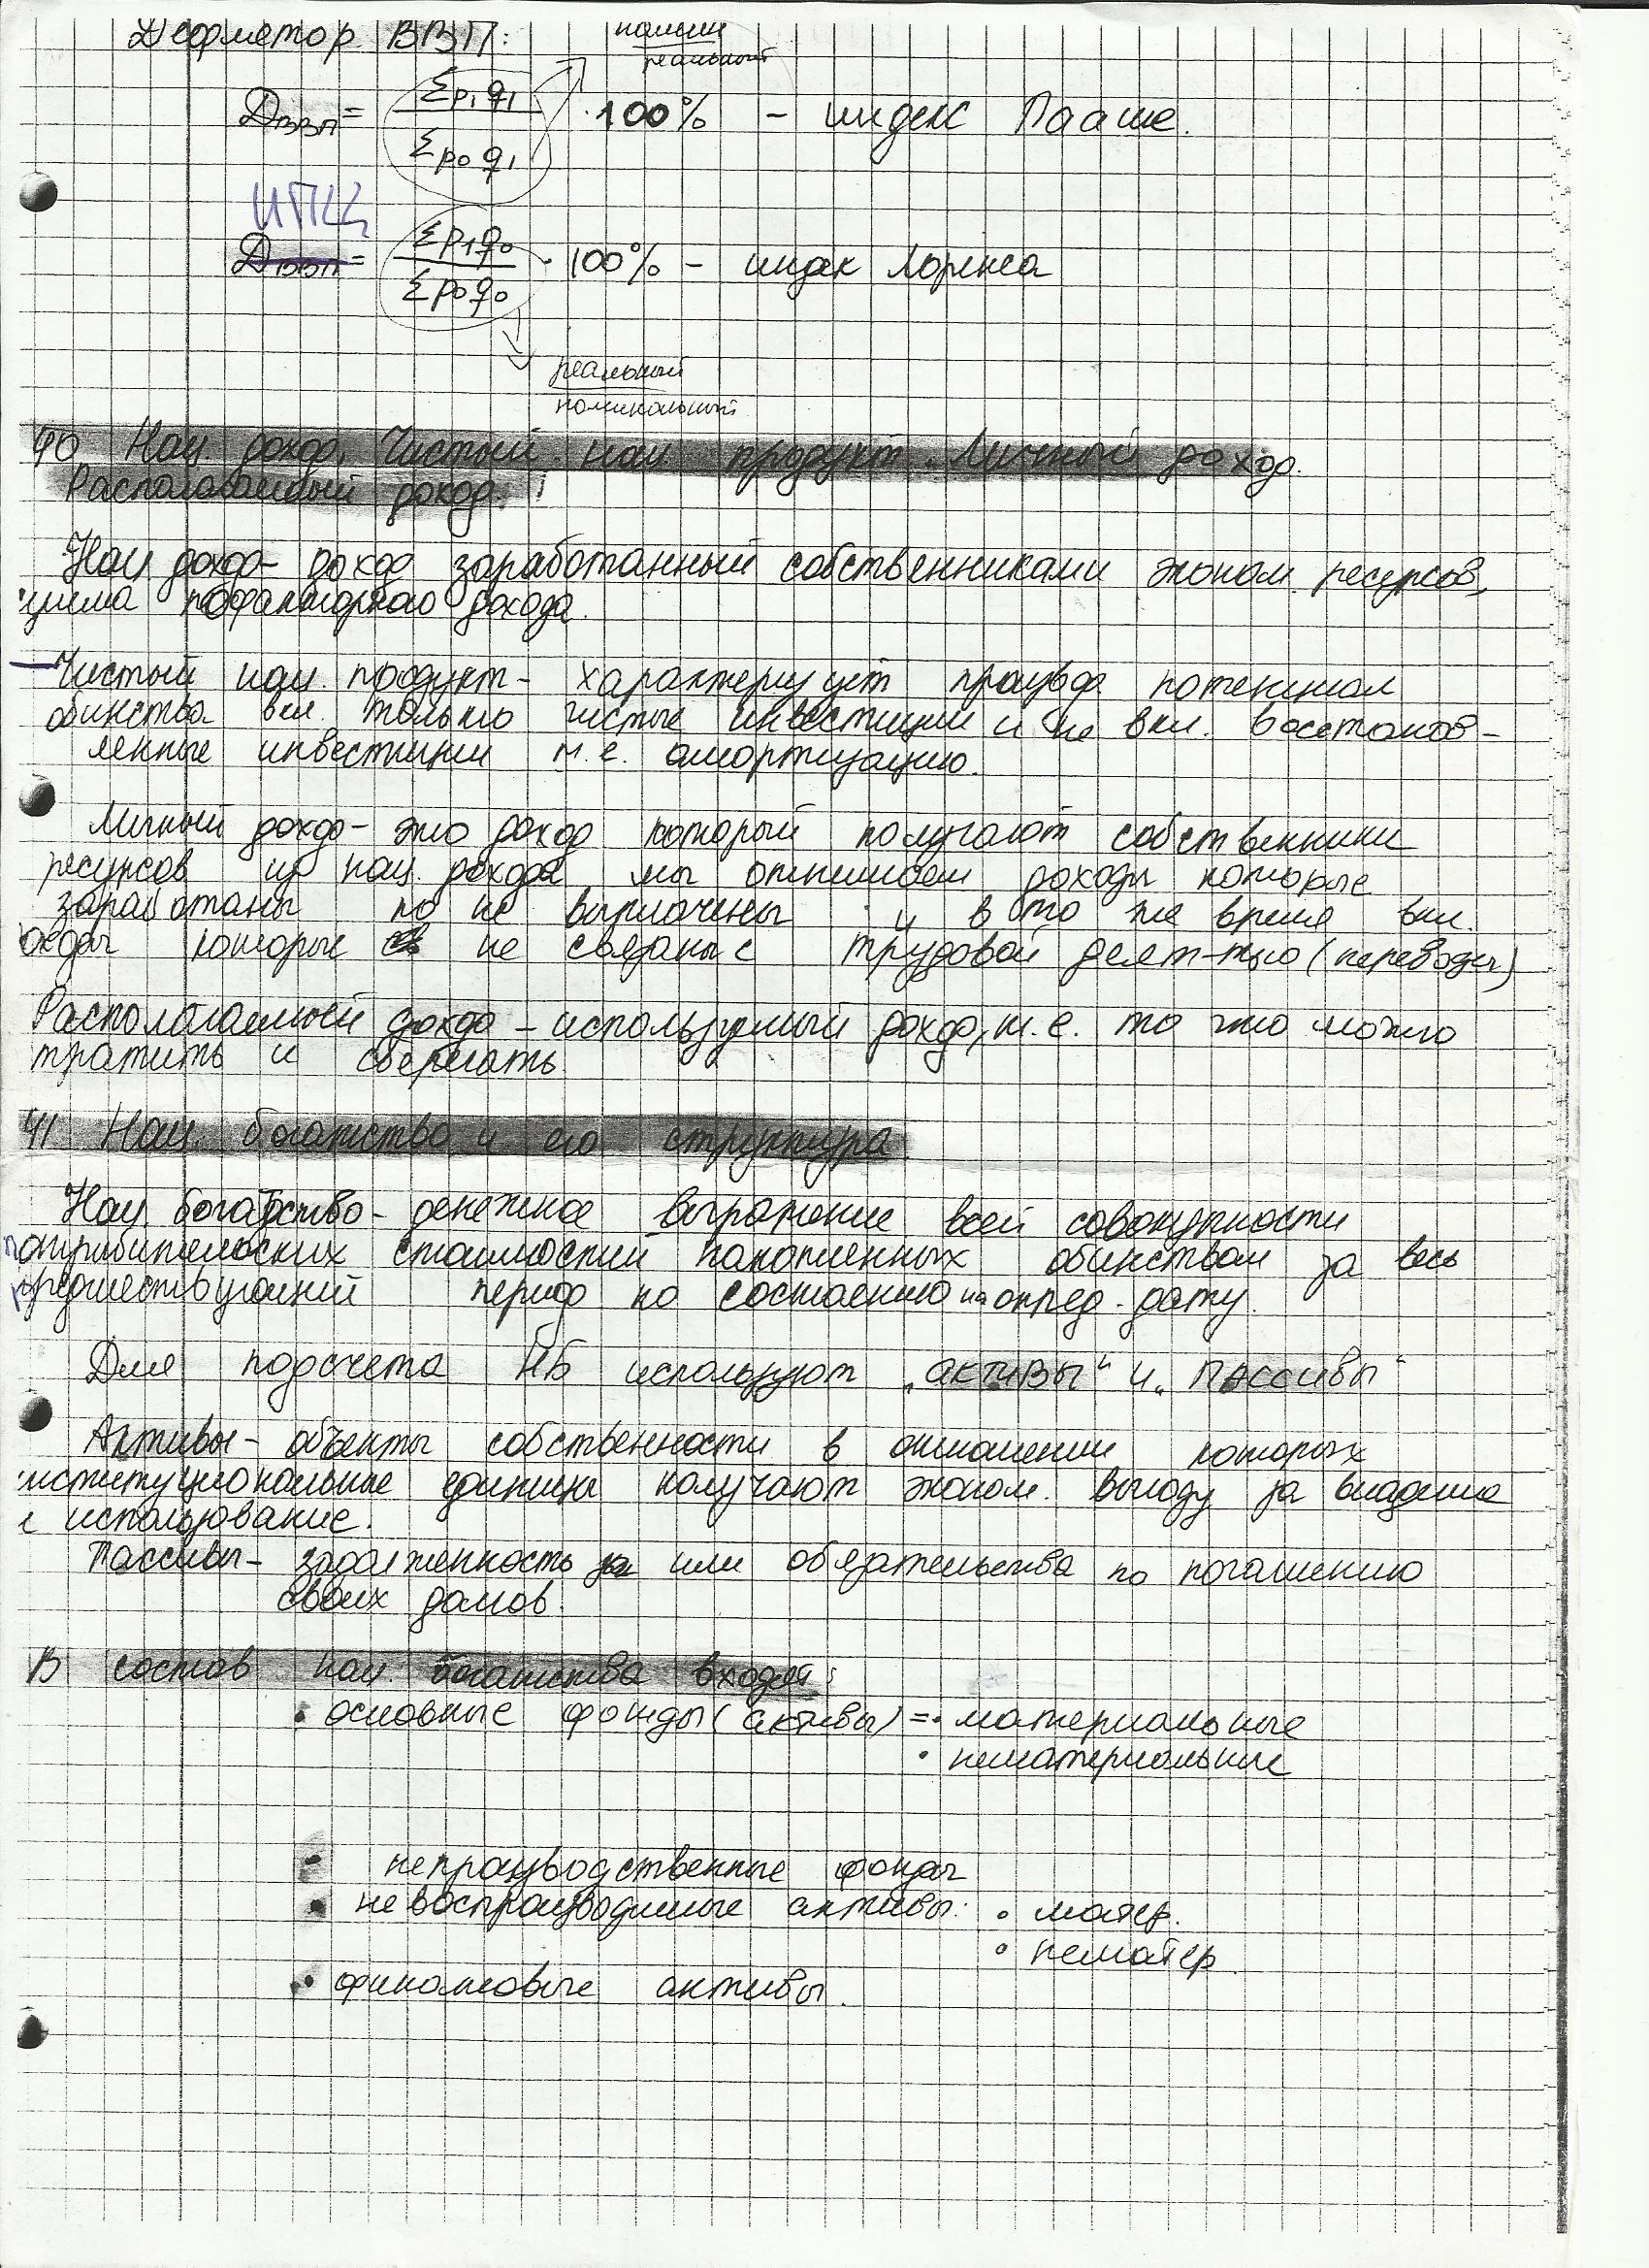 Дефлятор ВВП:
номин
реальный
Dввп = Σp₁q₁ / Σp₀q₁ · 100% – индекс Пааше.
ИПЦ
Dввп = Σp₁q₀ / Σp₀q₀ · 100% – индек Лоренса
реальный
номинальный
40 Нац доход. Чистый нац продукт. Личный доход.
Располагаемый доход.
Нац доход – доход заработанный собственниками эконом. ресурсов,
дохода.
Чистый нац. продукт – характеризует произвд потенциал
общества вкл. только чистые инвестиции и не вкл. восстанов-
ленные инвестиции т.е. амортизацию.
Личный доход – это доход который получают собственники
ресурсов из нац. дохода мы отнимаем доходы которые
заработаны но не выплачены и в то же время вкл.
которые не связаны с трудовой деят-тью (переводы)
Располагаемый доход – используемый доход, т.е. то что можно
тратить и сберегать.
41 Нац. богатство и его структура
Нац. богатство – денежное выражение всей совокупности
потрибительских стоимостей накопленных обществом за весь
предшествующий период по состоянию на опред. дату.
Для подсчета НБ используют „активы“ и „пассивы“
Активы – объекты собственности в отношении которых
институциональные единицы получают эконом. выгоду за владение
и использование.
Пассивы – задолженность или обязательства по погашению
своих долгов.
В состав нац. богатства входят:
• основные фонды (активы) = • материальные
• нематериальные
- непроизводственные фонды
• невоспроизводимые активы: • матер.
• нематер.
• финансовые активы.